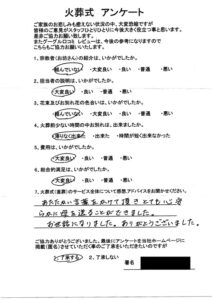 火葬式 アンケート
ご家族のお悲しみも癒えない状況の中、大変恐縮ですが
皆様のご意見がスタッフひとりひとりに今後大きく役立つ事と思います。
率直なご意見をお聞かせください。
またグーグル口コミ レビューは、今後の参考になりますので
こちらもご協力お願いいたします。
1. 宗教者(お坊さん)の紹介は、いかがでしたか。
・頼んでいない ・大変良い ・良い ・普通 ・悪い
2. 担当者の説明は、いかがでしたか。
・大変良い ・良い ・普通 ・悪い
3. 花束及びお別れ花の色合いは、いかがでしたか。
・頼んでいない ・大変良い ・良い ・普通 ・悪い
4. 火葬野に伺い時間の中お別れは、出来ましたか。
・滞りなく出来た ・出来た ・時間が短く出来なかった
5. 費用は、いかがでしたか。
・大変良い ・良い ・普通 ・悪い
6. 総合的満足は、いかがでしたか。
・大変良い ・良い ・普通 ・悪い
7. 火葬式(直葬)のサービス全体について感想アドバイスをお聞かせください。
あたたかい言葉をかけて頂きとても心安
らかに母を送ることができました。
お世話になりました。ありがとうございました。
ご協力ありがとうございました。最後にアンケートを当社ホームページに
掲載(匿名)させていただく事のご了承いただきたくお願いいたします。
1, 了承する 2, 了承しない
署名